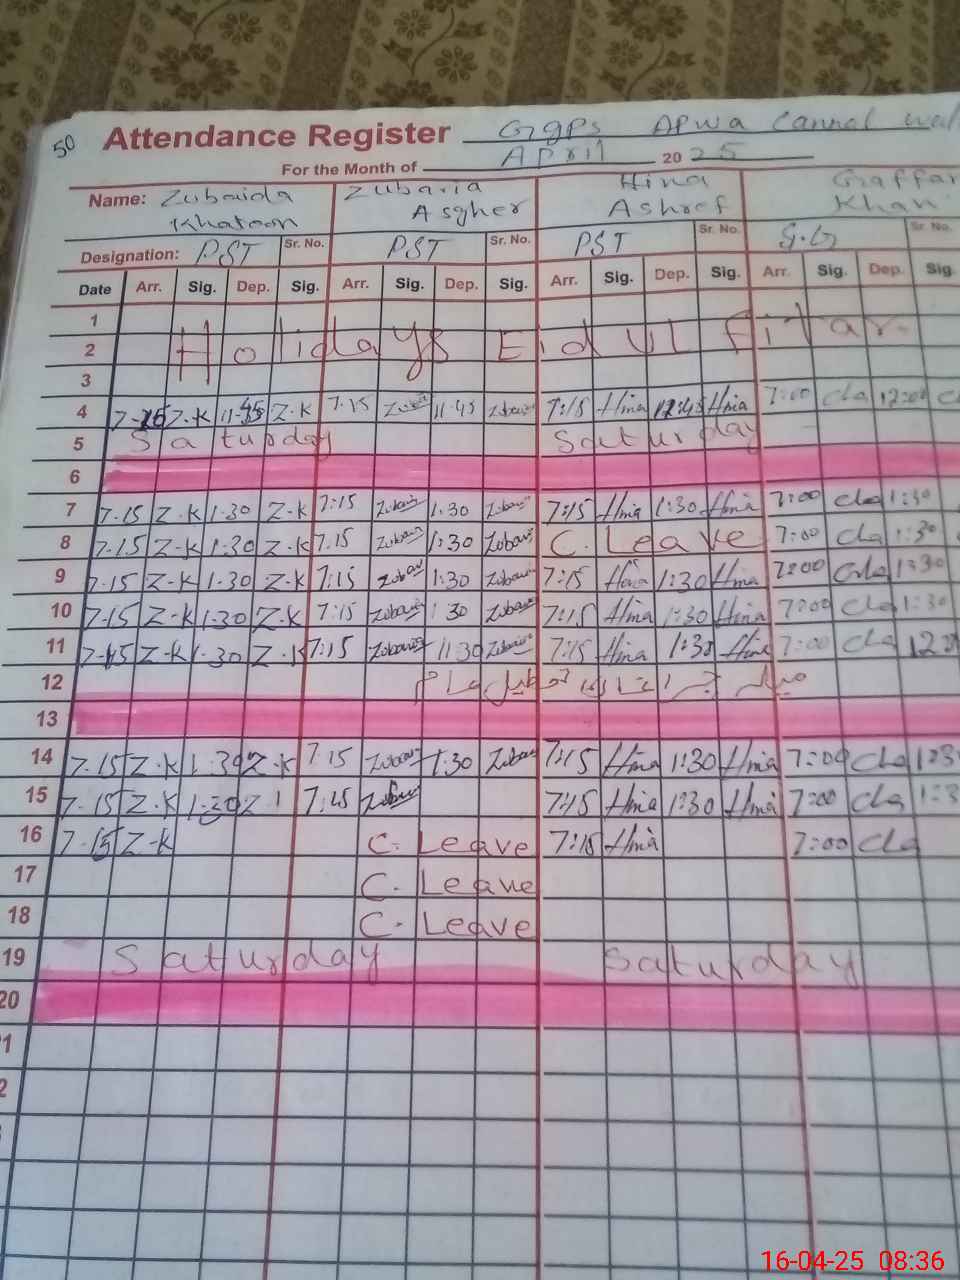 50
Attendance Register GGPS APWA Cannal wal
For the Month of April 2025
Name: Zubaida Khatoon Zubaria Asgher Hina Ashref Gaffar Khan
Designation: PST Sr. No. PST Sr. No. PST Sr. No. Sr. No.
Date Arr. Sig. Dep. Sig. Arr. Sig. Dep. Sig. Arr. Sig. Dep. Sig. Arr. Sig. Dep. Sig.
1
2 Holidays Eid Ul Fitar
3
4 Z.K 11-45 Z.K 7.15 11-45 7:15 Hina 12:45 Hina 7:00
5 Saturday Saturday
6
7 7-15 Z-K 1-30 Z-K 7:15 1:30 7:15 Hina 1:30 Hina 7:00 1:30
8 7-15 Z-K 1-30 Z-K 7.15 1:30 C. Leave 7:00 1:30
9 7-15 Z-K 1-30 Z-K 7:15 1:30 7:15 Hina 1:30 Hina 7:00 1:30
10 7-15 Z-K 1-30 Z-K 7:15 1:30 7:15 Hina 1:30 Hina 7:00 1:30
11 7-15 Z-K 1-30 Z-K 7:15 11:30 7:15 Hina 1:30 Hina 7:00
12
13
14 7-15 Z-K 1-30 Z-K 7.15 1:30 7:15 Hina 1:30 Hina 7:00
15 7-15 Z-K 1-30 7:15 7:15 Hina 1:30 Hina 7:00
16 7-15 Z-K C. Leave 7:15 Hina 7:00
17 C. Leave
18 C. Leave
19 Saturday Saturday
20
16-04-25 08:36